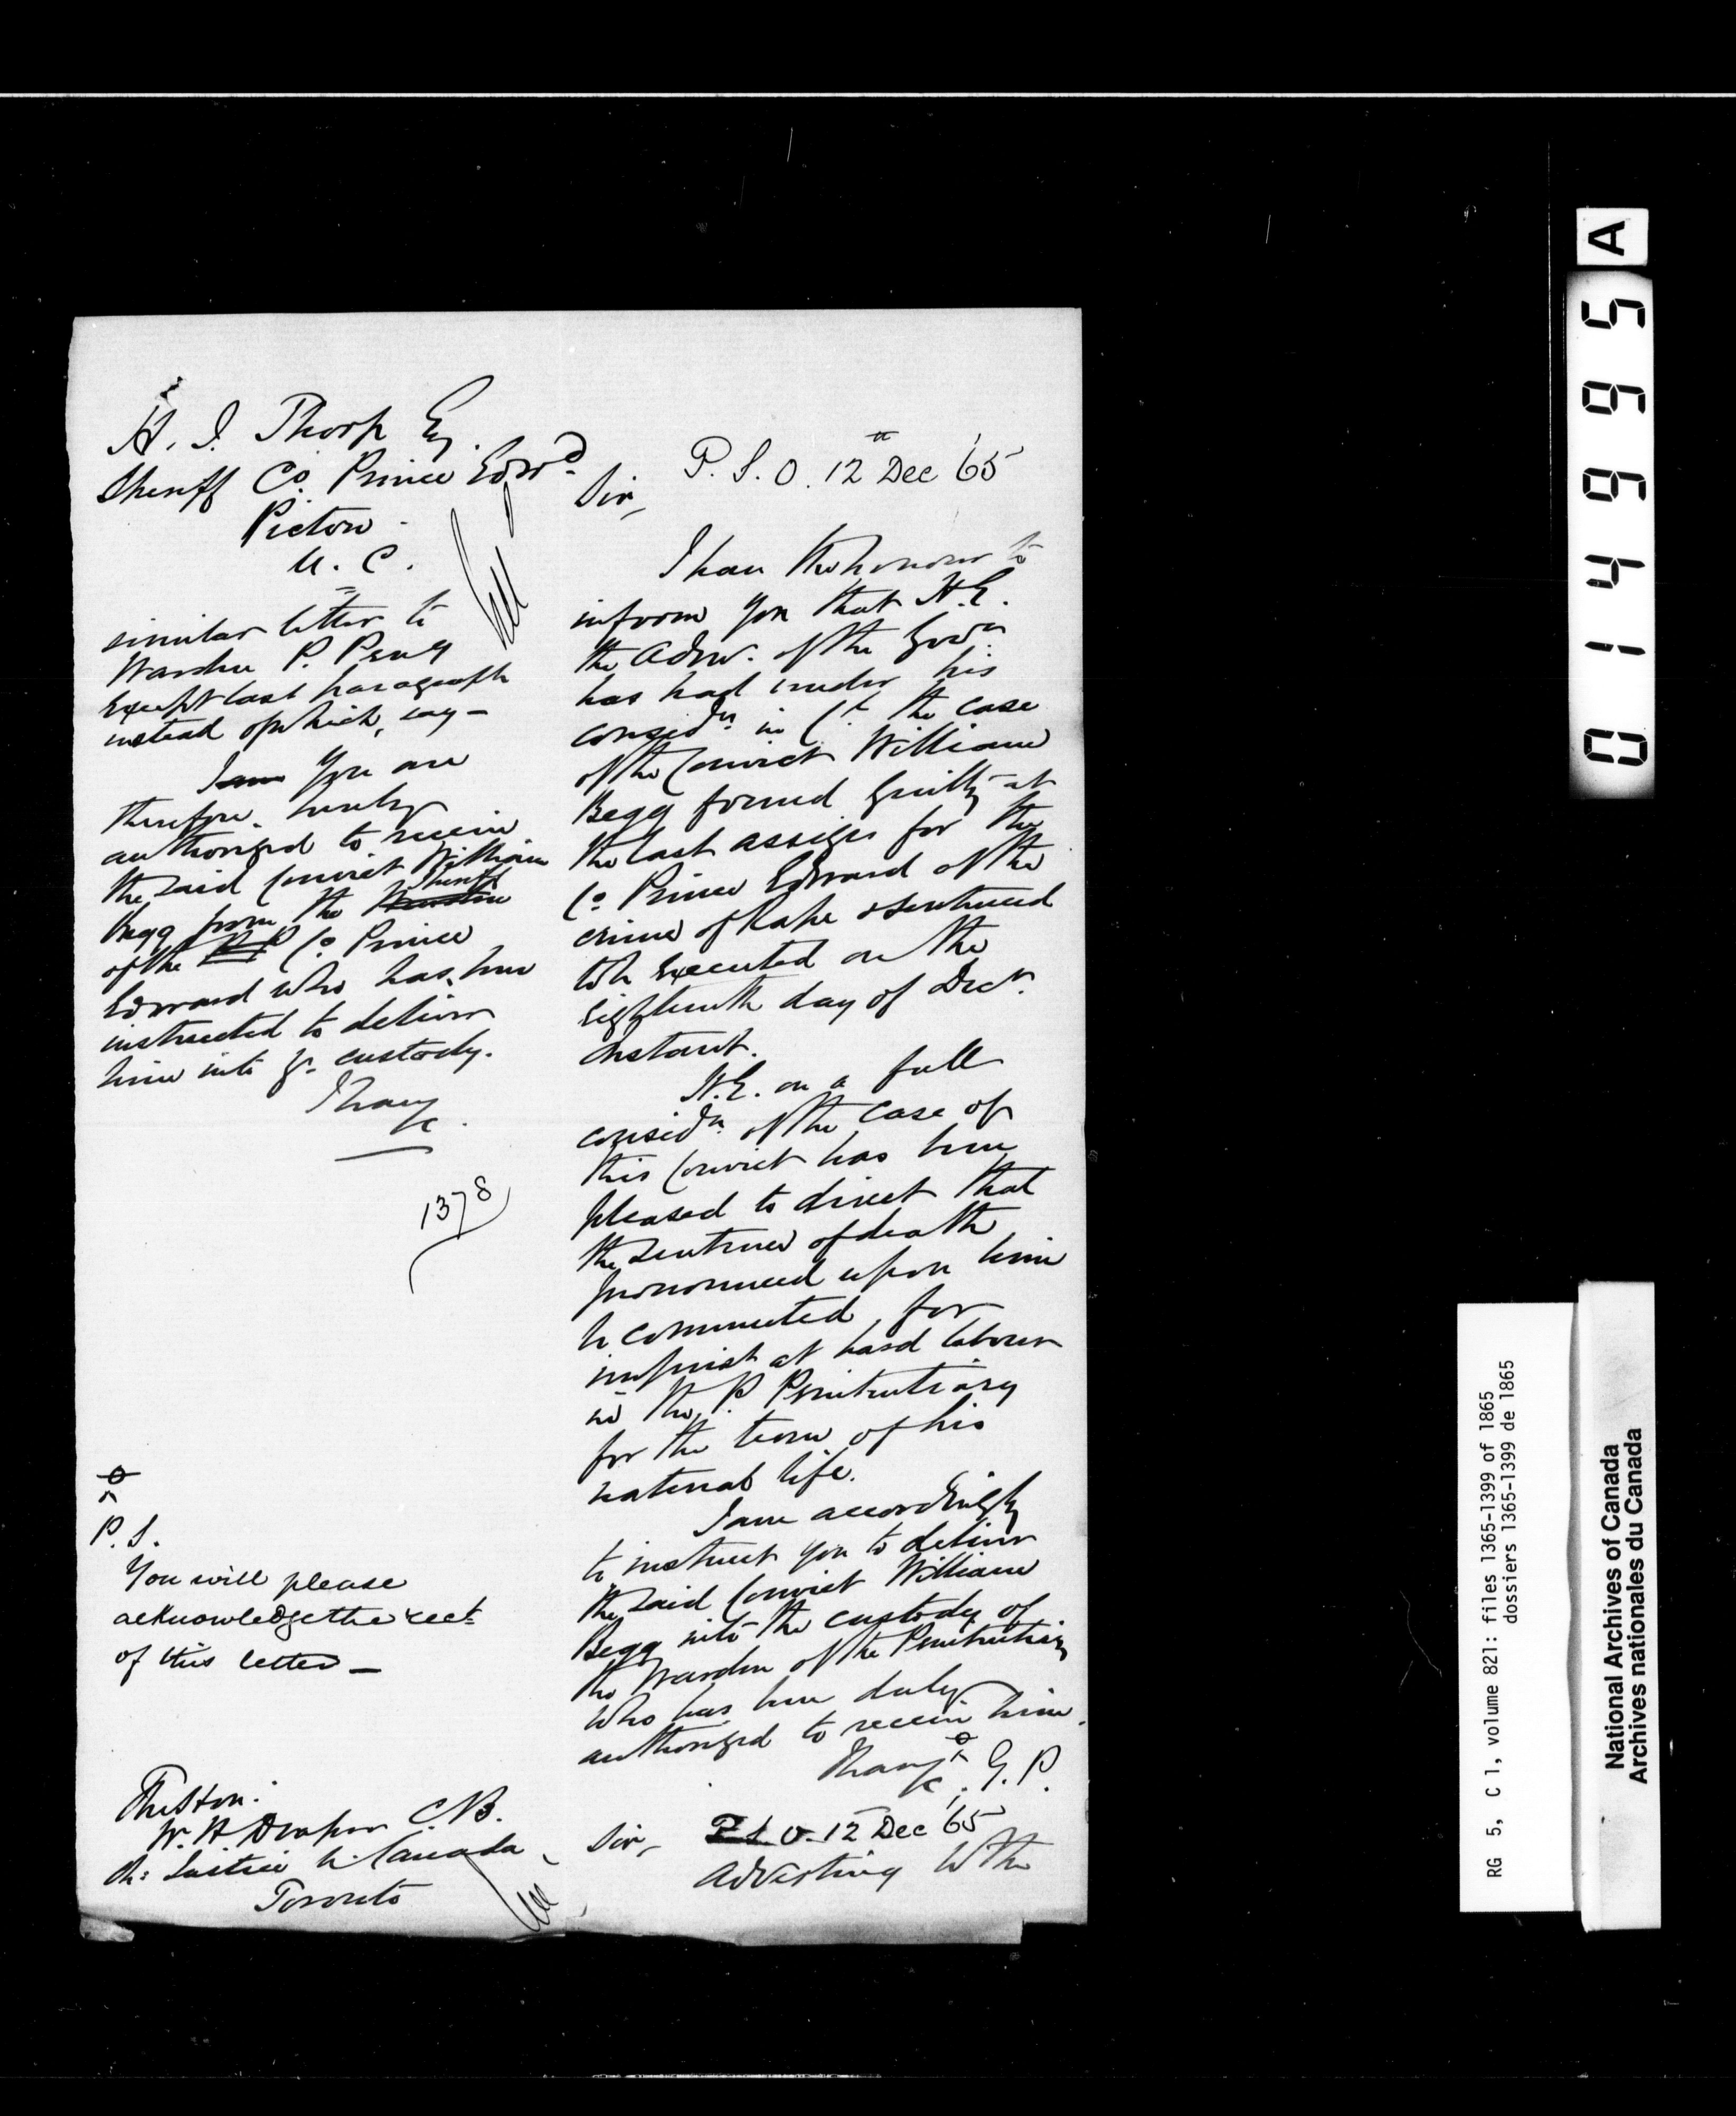 H. J. Thorp Esq.
Sheriff Co. Prince Edwd.
Picton
U. C.
similar letter to
Warden P. Peny
Except last paragraph
instead of which, say -
I am You are
therefore hereby
authorized to receive
the said Convict William
Begg from the Warden Sheriff
of the P. P. Co Prince
Edward who has been
instructed to deliver
him into yr. custody.
I have
&c.
1378
P. S.
You will please
acknowledge the rect
of this letter —
The Hon:
W. H Draper C.B.
Ch: Justice U. Canada
Toronto
P. S. O. 12th Dec '65
Sir,
I have the honour to
inform you that H.E.
the Admr. of the Govtn
has had under his
considn in Cl the case
of the Convict William
Begg found guilty at
the last assizes for the
Co Prince Edward of the
crime of Rape & sentenced
to be Executed on the
Eighteenth day of Decr.
instant.
H.E. on a full
considn of the case of
this Convict has been
pleased to direct that
the sentence of death
pronounced upon him
be commuted for
imprist at hard labour
in the P. Penitentiary
for the term of his
natural life.
I am accordingly
to instruct you to deliver
the said Convict William
Begg into the custody of
the Warden of the Penitentiary
who has been duly
authorized to receive him.
I have
&c. G. P.
P S O. 12 Dec '65
Sir,
Adverting to the
A
014995
RG 5, C 1, volume 821: files 1365-1399 of 1865
dossiers 1365-1399 de 1865
National Archives of Canada
Archives nationales du Canada